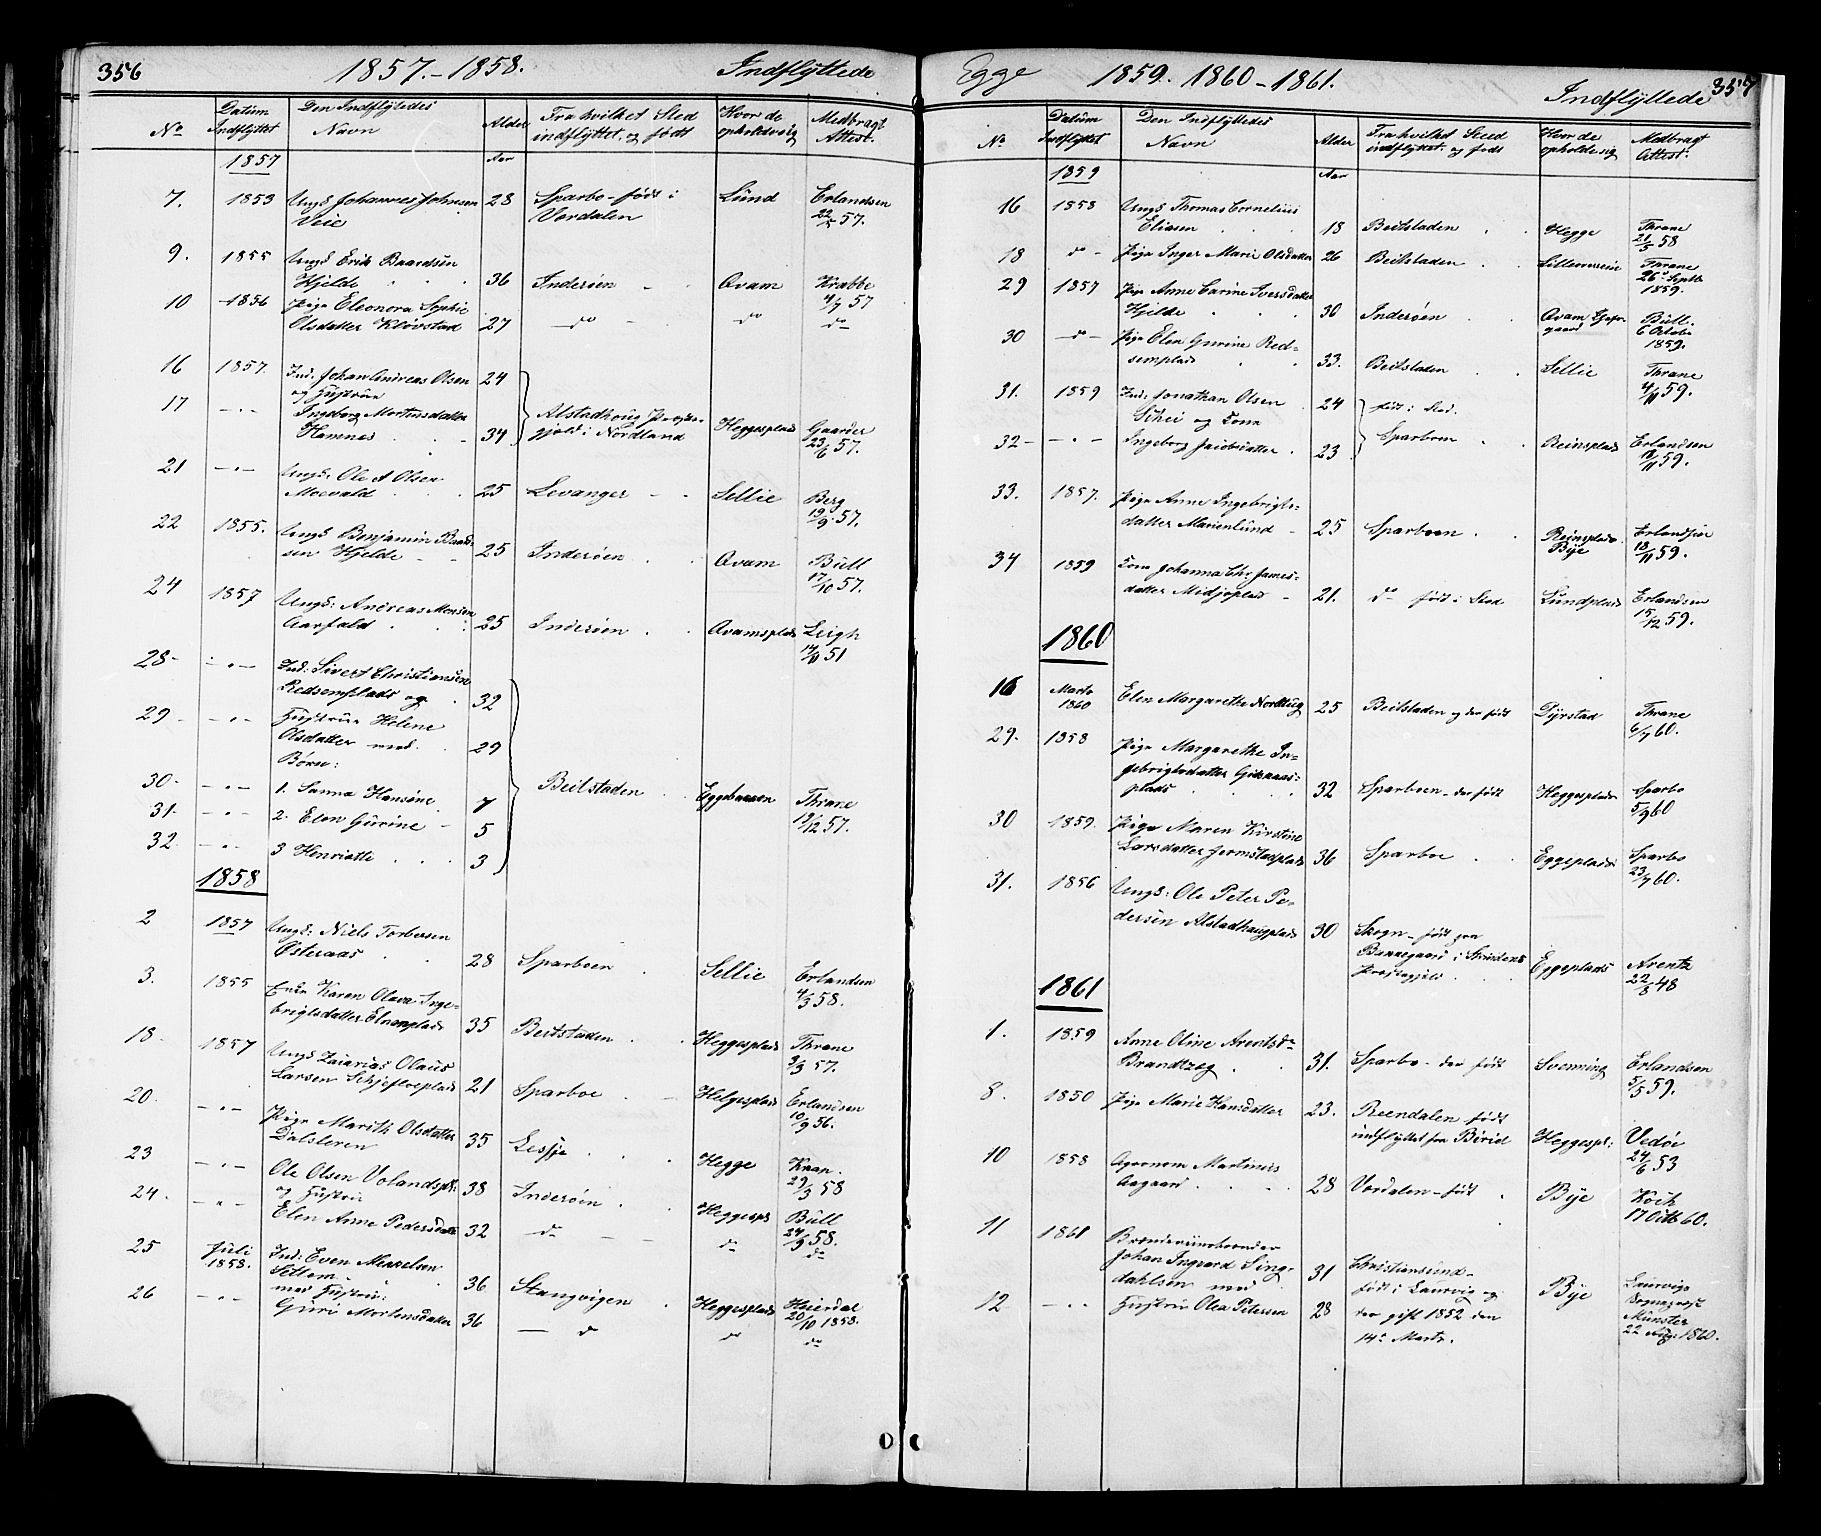 356 1857.-1858. Indflyttede
No Datum Indflyttet Den Indflyttedes Navn Alder Fra hvilket Sted indflyttet og født Hvor de opholde sig Medbragt Attest.
1857 Aar
7. 1853 Ungk Johannes Johnsen 28 Sparbo-født i Lund Erlandsen
Veie Vordalen 22/5 57.
9. 1855 Ungk Erik Baardsen
Hjelde 36 Inderøen Qvam Krabbe
4/7 57
10 1856 Pige Eleonora Sophie
Olsdatter Kløvstad 27 do do do
16 1857. Ind: Johan Andreas Olsen 24
og Hustrue
17 -"- Ingeborg Mortinsdatter Alstadhoug Præste-
Hamnes 34 gjeld i Nordland Heggesplads Gaarder
23/6 57.
21 -"- Ungk: Ole A Olsen
Moevald 25 Levanger Sellie Berg
19/9 57.
22 1855. Ungk Benjamin Baard-
sen Hjelde 25 Inderøen Qvam Büll
17/10 57.
24 1857 Ungk: Andreas Monsen
Aarfald 25 Inderøen Qvamsplads Leigh
51
28- -"- Ind: Sivert Christiansen
Redsemplads og 32
29- -"- Hustrue Helene
Olsdatter med 29
Børn:
30- -"- 1. Sanna Hansine 7 Beitstaden Thrane
31- -"- 2. Elen Gurine 5 19/12 57.
32 -"- 3 Henriette 3
1858
2 1857 Ungk: Niels Torbersen
Østeraas 28 Sparboen Sellie Erlandsen
4/3 58.
3. 1855 Enke Karen Olava Inge-
brigtsdatter 35 Beitstaden Heggesplads Thrane
9/3 57.
18. 1857 Ungk Zakarias Olaus
Larsen 21 Sparboe Helgesplads Erlandsen
10/9 56.
20. -"- Pige Marith Olsdatter
Dalsleren 35 Lessje Hegge
29/3 58
23 -"- Ole Olsen Volandspl: 38 Inderøen Heggespl Büll
og Hustru 24/9 58.
24. -"- Elen Anne Pedersdatter 32 do do do
25 Juli Ind: Even Mikkelsen
1858. Settem 36 Stangvigen Heggesplads Heierdal
med Hustrue: 20/10 1858.
26 -"- Guri Mortensdatter 36 do do do
Egge 1859. 1860-1861. Indflyttede 357
No Datum Indflyttet Den Indflyttedes Navn Alder Fra hvilket Sted indflyttet og født Hvor de opholde sig Medbragt Attest.
1859 Aar
16 1858 Ungk Thomas Cornelius
Eliasen 18 Beitstaden Hegge Thrane
21/5 58
18 do Pige Inger Marie Olsdatter 26 Beitstaden Thrane
26de Septbr
1859.
29 1857 Pige Anne Carine Iversdatter
Hjelde 30 Inderøen Qvam Büll.
6 Octobr
1859.
30 do Pige Elen Gurine Red-
semplads 33. Beitstaden Sellie Thrane
4/11 59.
31. 1859 Ind: Jonathan Olsen 24 født i Sted.
Schei og Kone
32- -"- Ingeborg Jacobsdatter 23 Sparboen Reinsplads Erlandsen
18/11 59.
33. 1857. Pige Anne Ingebrigts-
datter Marienlund 25 Sparboen Reinsplads Erlandsen
Bye 18/11 59.
34 1859 Kone Johanna Chr. James-
datter Midjoplads 21. do født i Sted Lundplads Erlandsen
15/12 59.
1860
16 Marts 1860 Elen Margarethe Nordtug 25 Beitstaden og der født Dyrstad Thrane
6/7 60.
29. 1858 Pige Margarethe In-
gebrigtsdatter
plads 32 Sparboen-der født Heggesplads Sparbo
5/9 60
30 1859. Pige Maren Kirstine
Larsdatter 36 Sparboe Eggeplads Sparbo
23/7 60.
31. 1856 Ungk: Ole Peter Pe-
dersen Alstadhaugplads 30 Skogn-født paa
i Strindens Eggeplads Arentz
Præstegjeld. 22/8 48
1861
1. 1859 Anne Oline Arentsdr
Brandtzeg 31. Sparbo-der født Svenning Erlandsen
5/5 59.
8. 1850 Pige Marie Hansdatter 23. Reendalen født
indflyttet fra Børid Heggespl: Vedøe
24/6 53
10 1858 Agronom Martinius
Aagaard 28 Vordalen-født Bye Koch
17 Octb 60.
11 1861
Johan Ingvard Ling- 31 Christiansund- Bye Laurvigs
dahlsen med født i Laurvig og Sognepræst
12 -"- Hustrue Olea Petersen 28 der gift 1852 den Münster
14de Marts. 22 Aug: 1860.